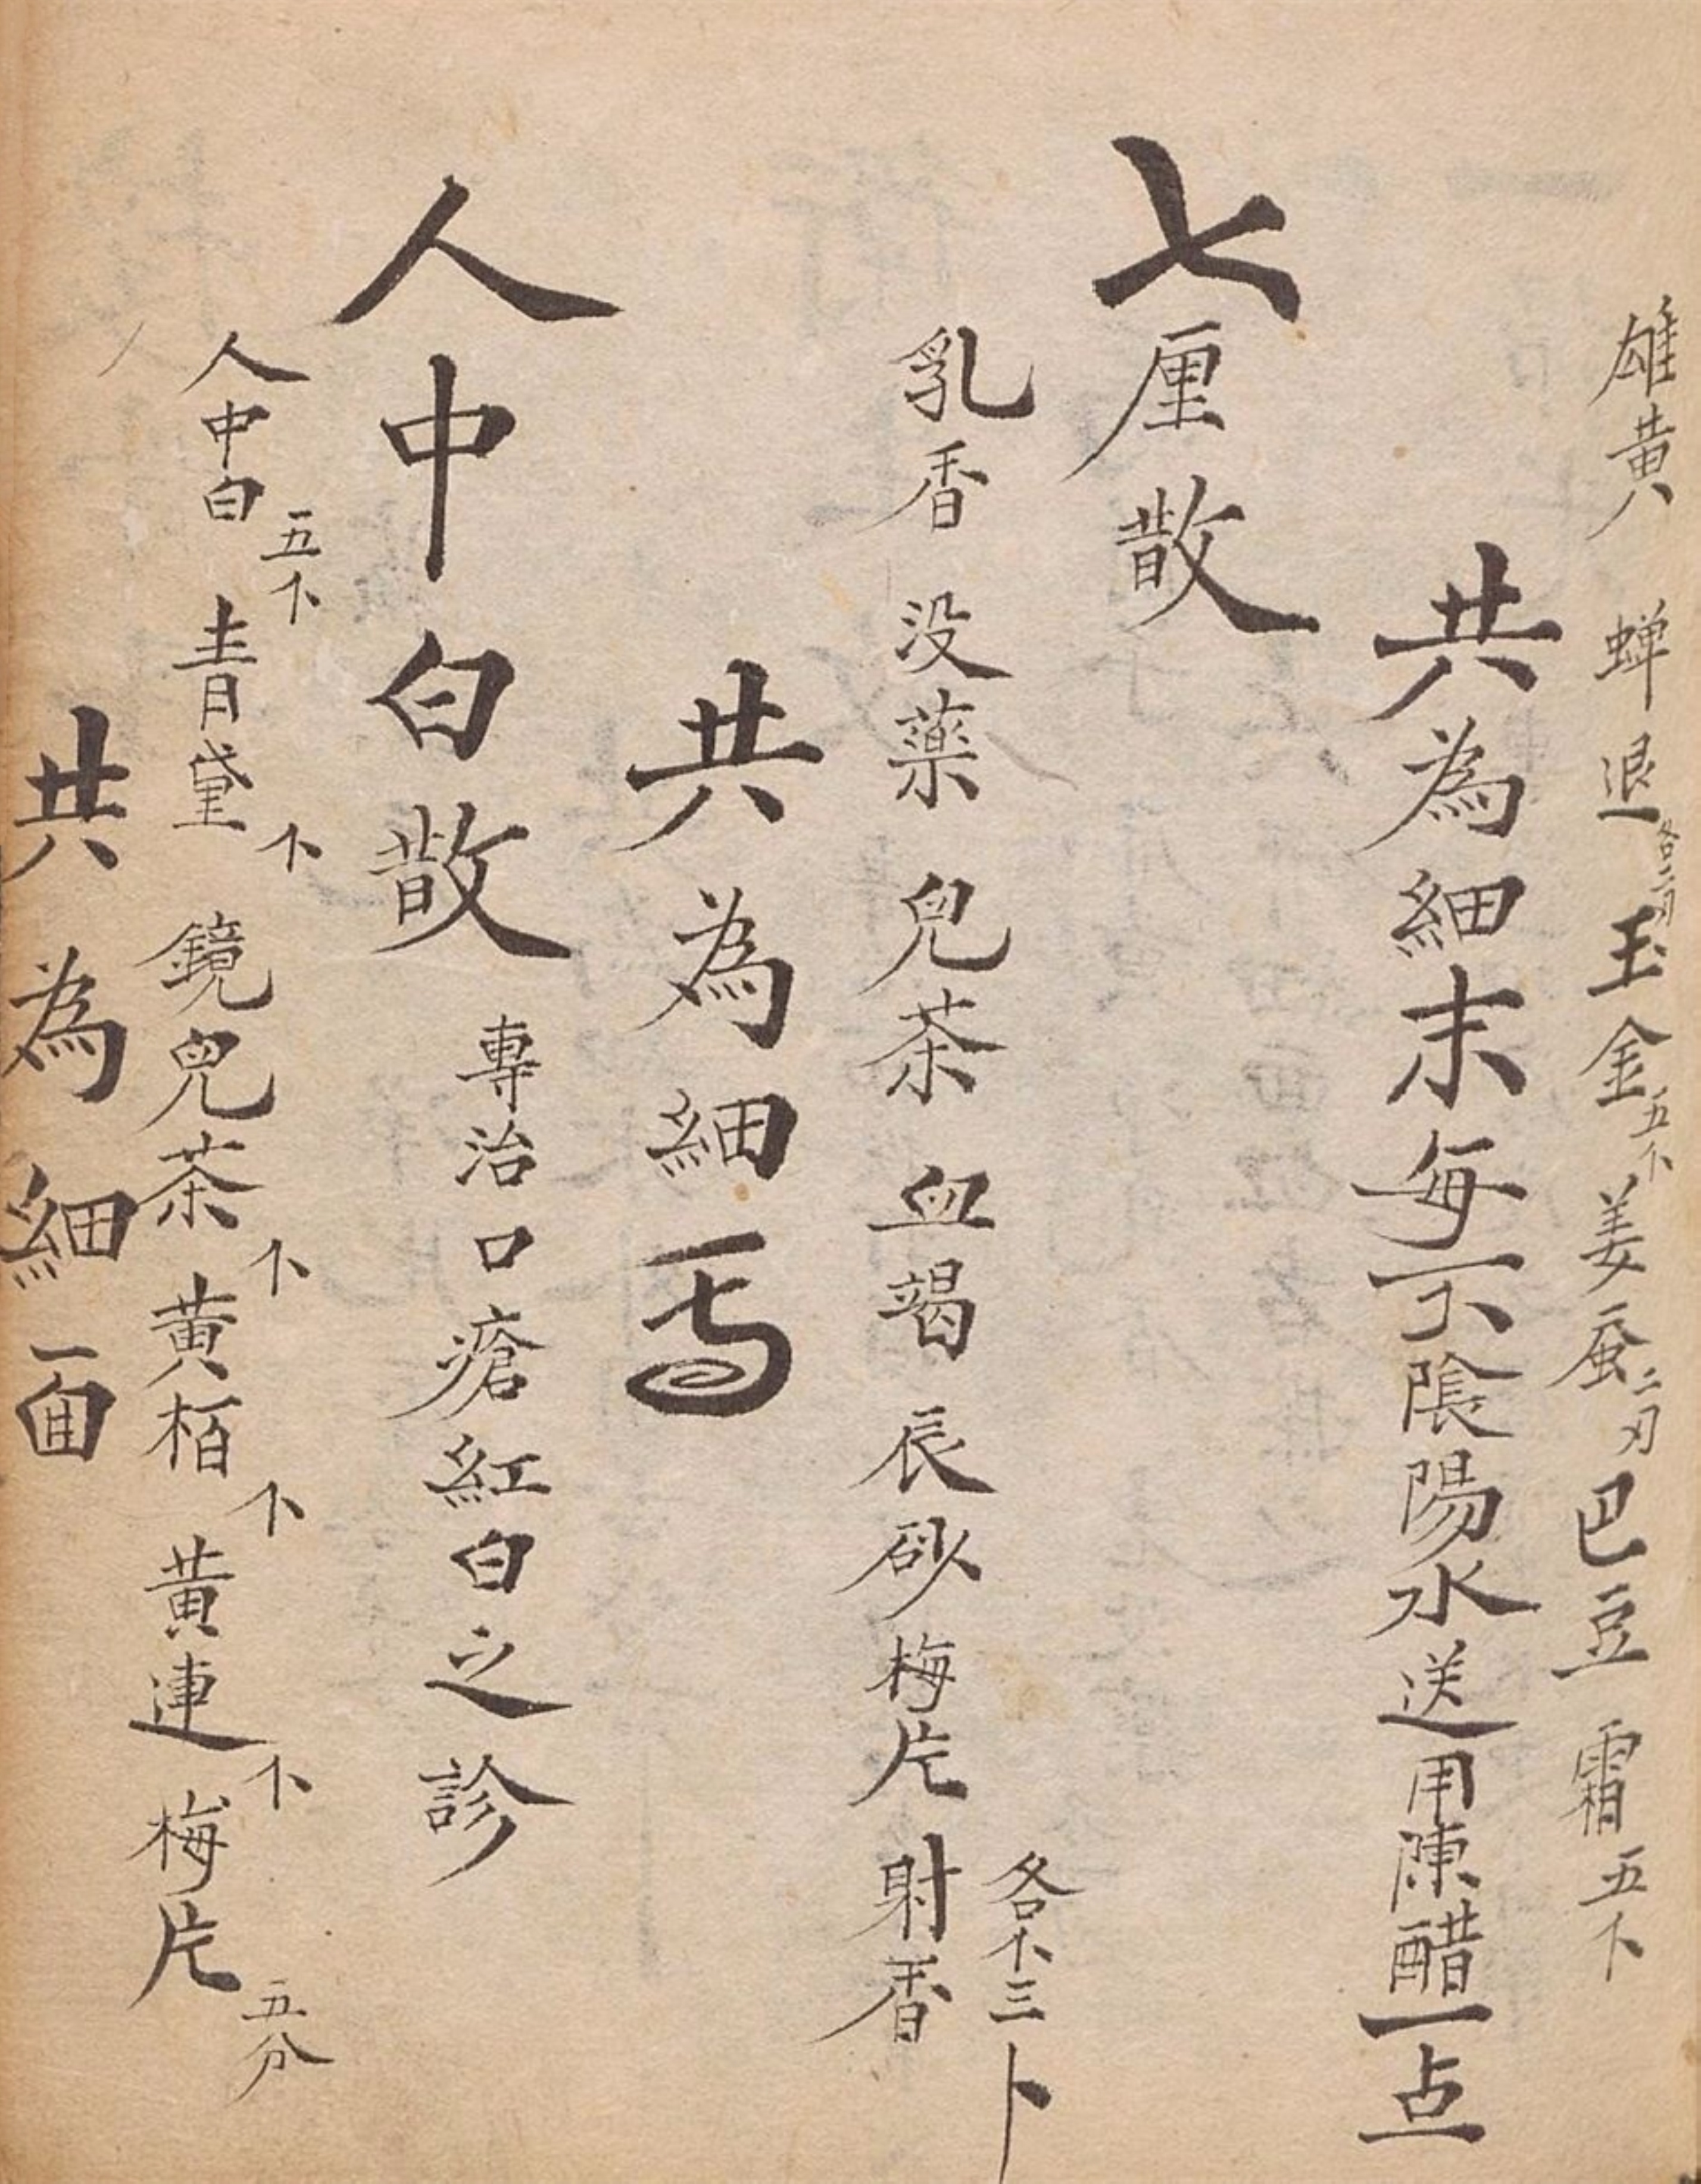 雄黄 蝉退 各二刃 玉金 五下 姜蚕 二刃 巴豆霜 五卜
共為細末每下隂陽水送用陳醋一点
七厘散
乳香 没藥 兒茶 血竭 辰砂 梅片 射香 各 三卜
共為細
人中白散 專治口瘡紅白之診
人中白 五下 青黛 下 鏡兒茶 下 黄栢 下 黄連 下 梅片 五分
共為細面